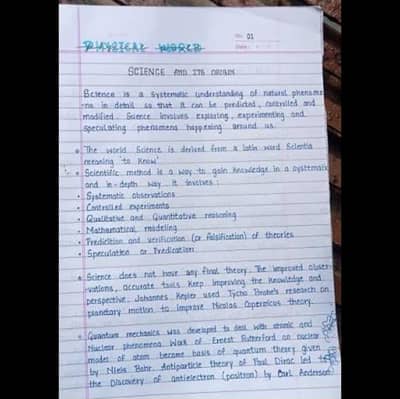 No. 01
PHYSICAL WORLD
Date:
SCIENCE AND ITS ORIGIN
Science is a systematic understanding of natural phenome
-na in detail so that it can be predicted, controlled and
modified. Science involves exploring, experimenting and
speculating phenomena happening around us.
The world Science is derived from a latin word Scientia
meaning 'to know'
Scientific method is a way to gain knowledge in a systematic
and in-depth way. It involves:
Systematic observations
Controlled experiments
Qualitative and Quantitative reasoning
Mathematical modeling
Prediction and verification (or falsification) of theories
Speculation or Predication
Science does not have any final theory. The improved obser
-vations, accurate tools keep improving the knowledge and
perspective. Johannes Kepler used Tycho Brahe's research on
planetary motion to improve Nicolas Copernicus theory.
Quantum mechanics was developed to deal with atomic and
Nuclear phenomena. Work of Ernest Rutherford on nuclear
model of atom became basis of quantum theory given
by Niels Bohr. Antiparticle theory of Paul Dirac led to
the Discovery of antielectron (positron) by Carl Anderson